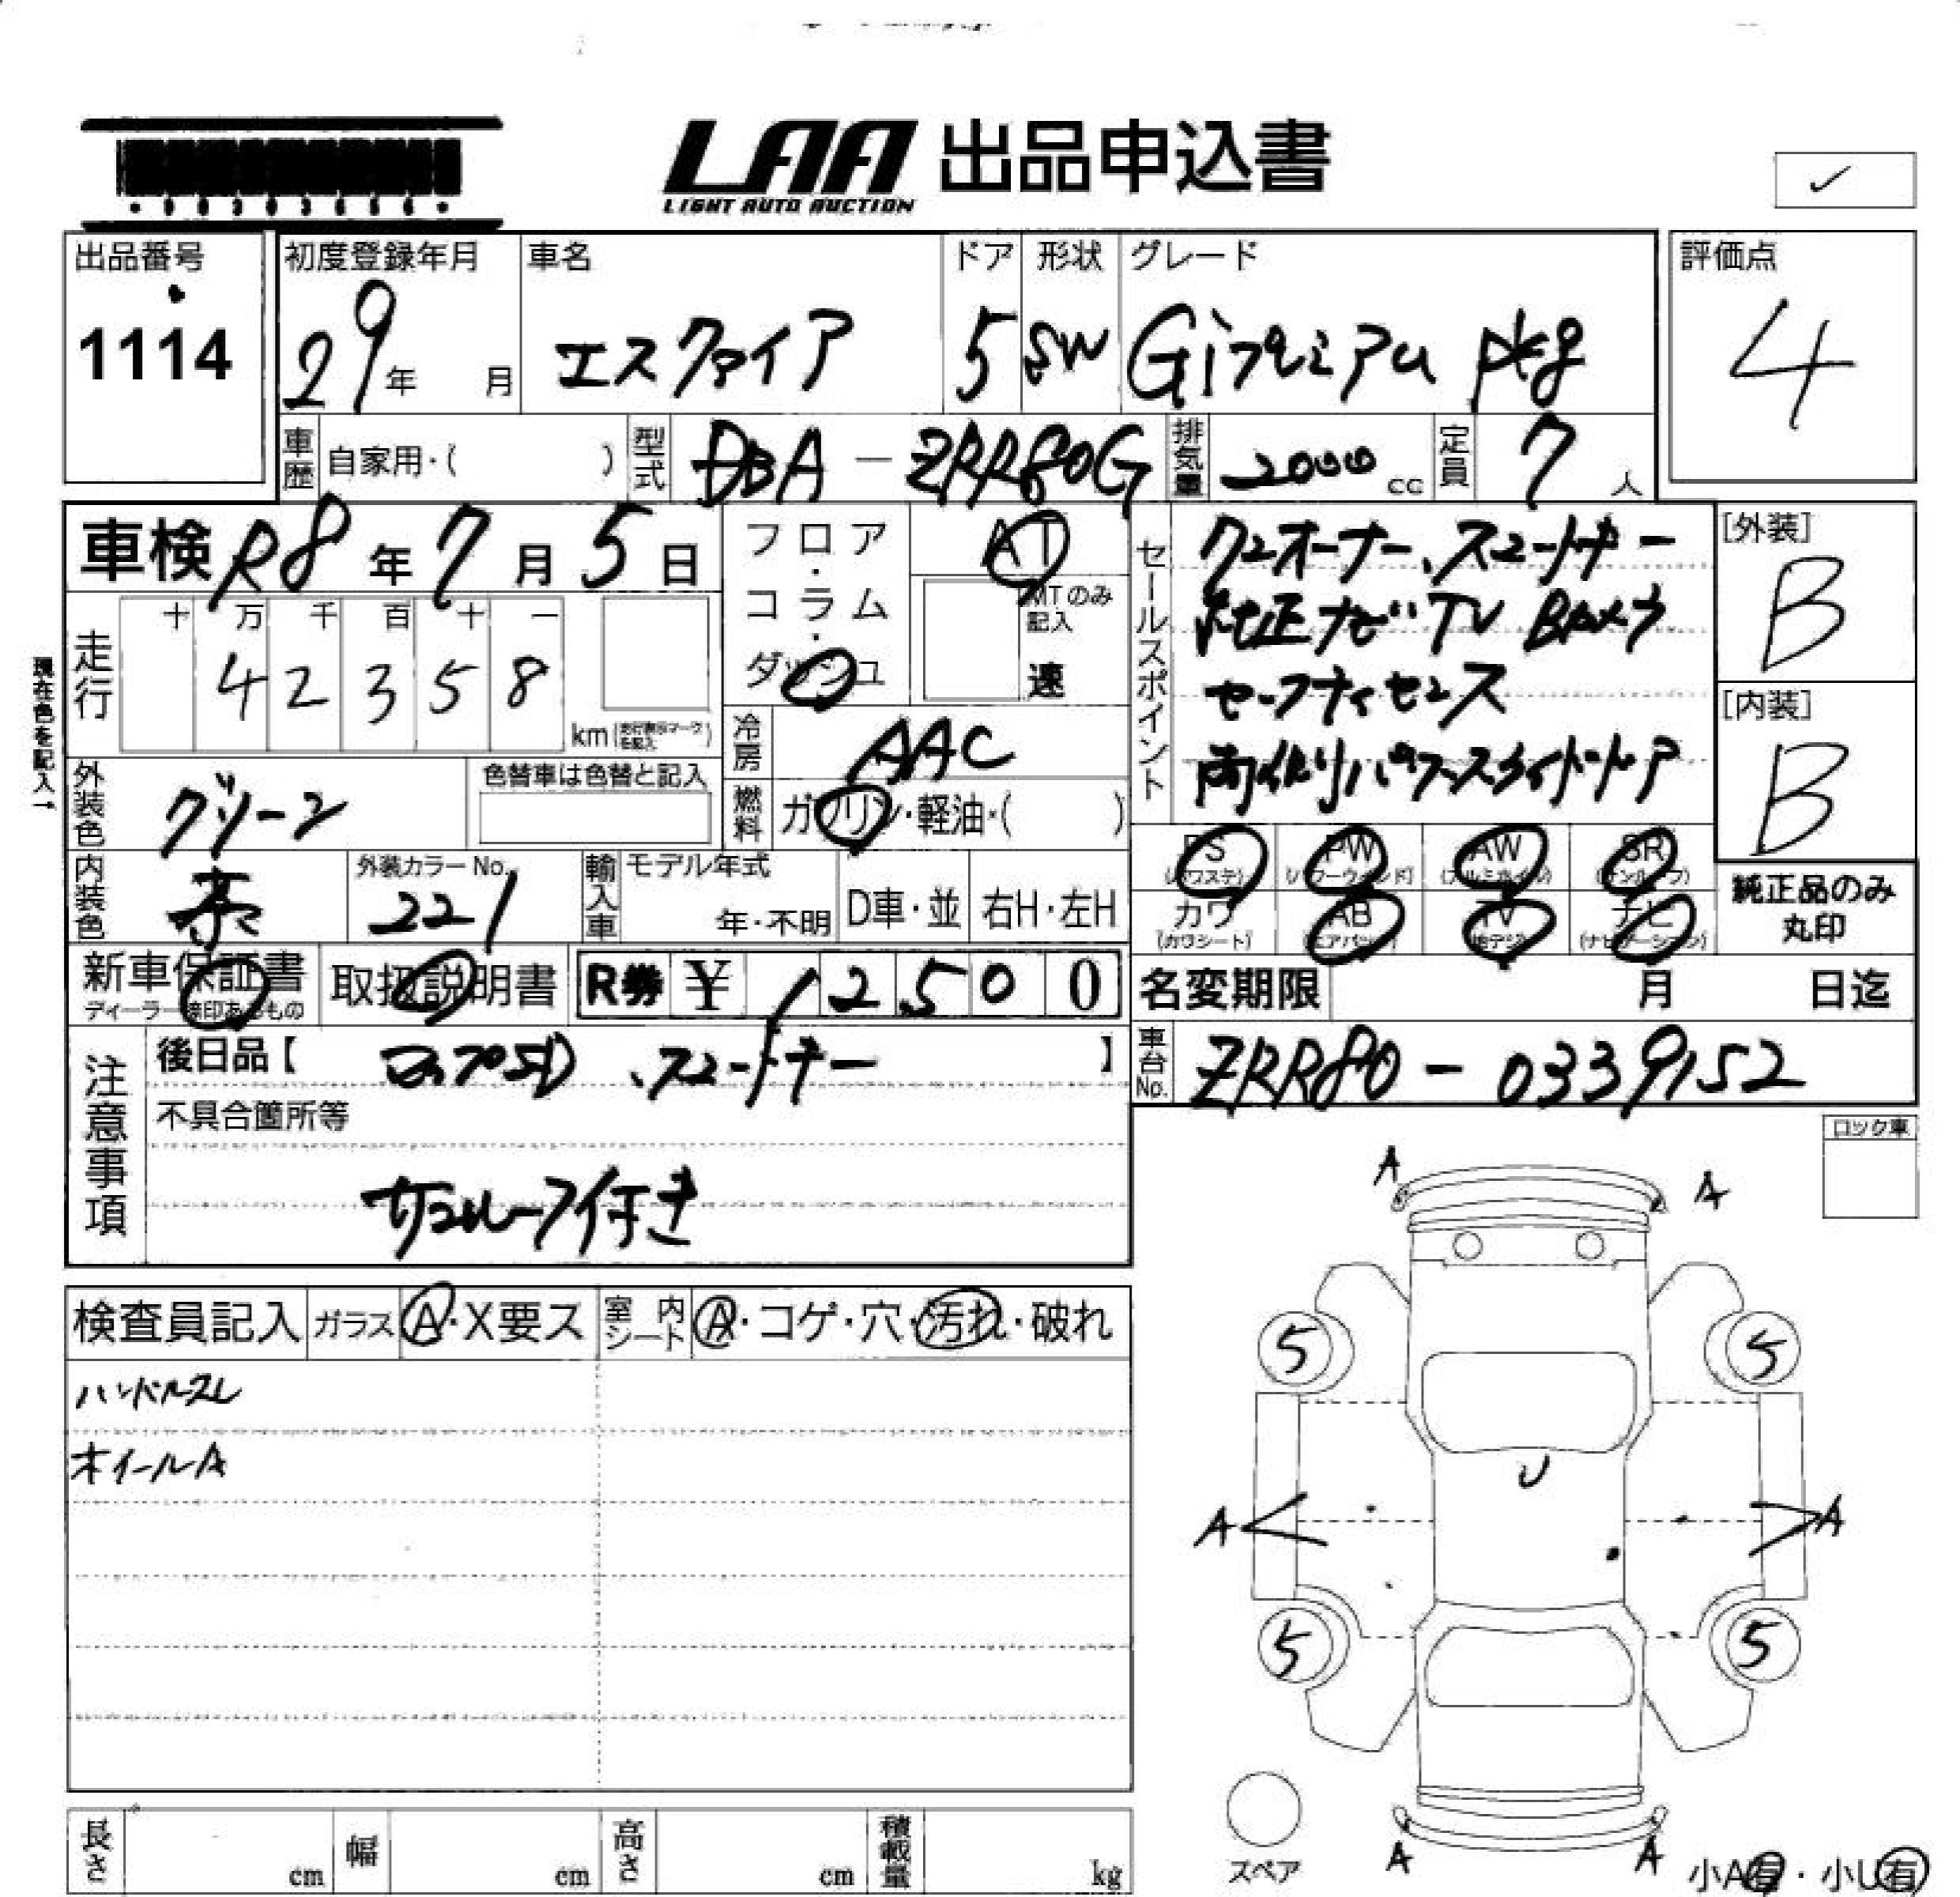 LAA 出品申込書
LIGHT AUTO AUCTION
出品番号
1114
初度登録年月
29年 月
車名
エスクァイア
ドア
5
形状
SW
グレード
Giプレミアム pkg
評価点
4
車歴 自家用・( )
型式 DBA-ZRR80G
排気量 2000 cc
定員 7人
車検 R8年7月5日
走行 十 万 千 百 十 一
4 2 3 5 8
km
現在色を記入→
フロア・コラム・ダッシュ
AT
MTのみ記入
速
冷房 AAC
燃料 ガソリン・軽油・( )
セールスポイント
ワンオーナー、スペアキー
純正ナビ TV Bカメラ
セーフティセンス
両側パワースライドドア
[外装]
B
[内装]
B
外装色 グリーン
色替車は色替と記入
内装色 茶
外装カラーNo.
221
輸入車 モデル年式
年・不明
D車・並
右H・左H
PS (パワステ)
PW (パワーウィンド)
AW (アルミホイル)
SR (サンルーフ)
カワ (カワシート)
AB (エアバッグ)
TV (地デジ)
ナビ (ナビゲーション)
純正品のみ丸印
新車保証書
ディーラー捺印あるもの
取扱説明書
R券 ¥ 12500
名変期限 月 日迄
注意事項
後日品【 マップSD、スペアキー 】
車台No. ZRR80-0339152
不具合箇所等
サンルーフ付き
ロック車
検査員記入
ガラス A・X要ス
室内シート A・コゲ・穴・汚れ・破れ
ハンドルスレ
ホイールA
A
A
5
5
U
A
A
5
5
スペア
A
A
小A有・小U有
長さ cm
幅 cm
高さ cm
積載量 kg